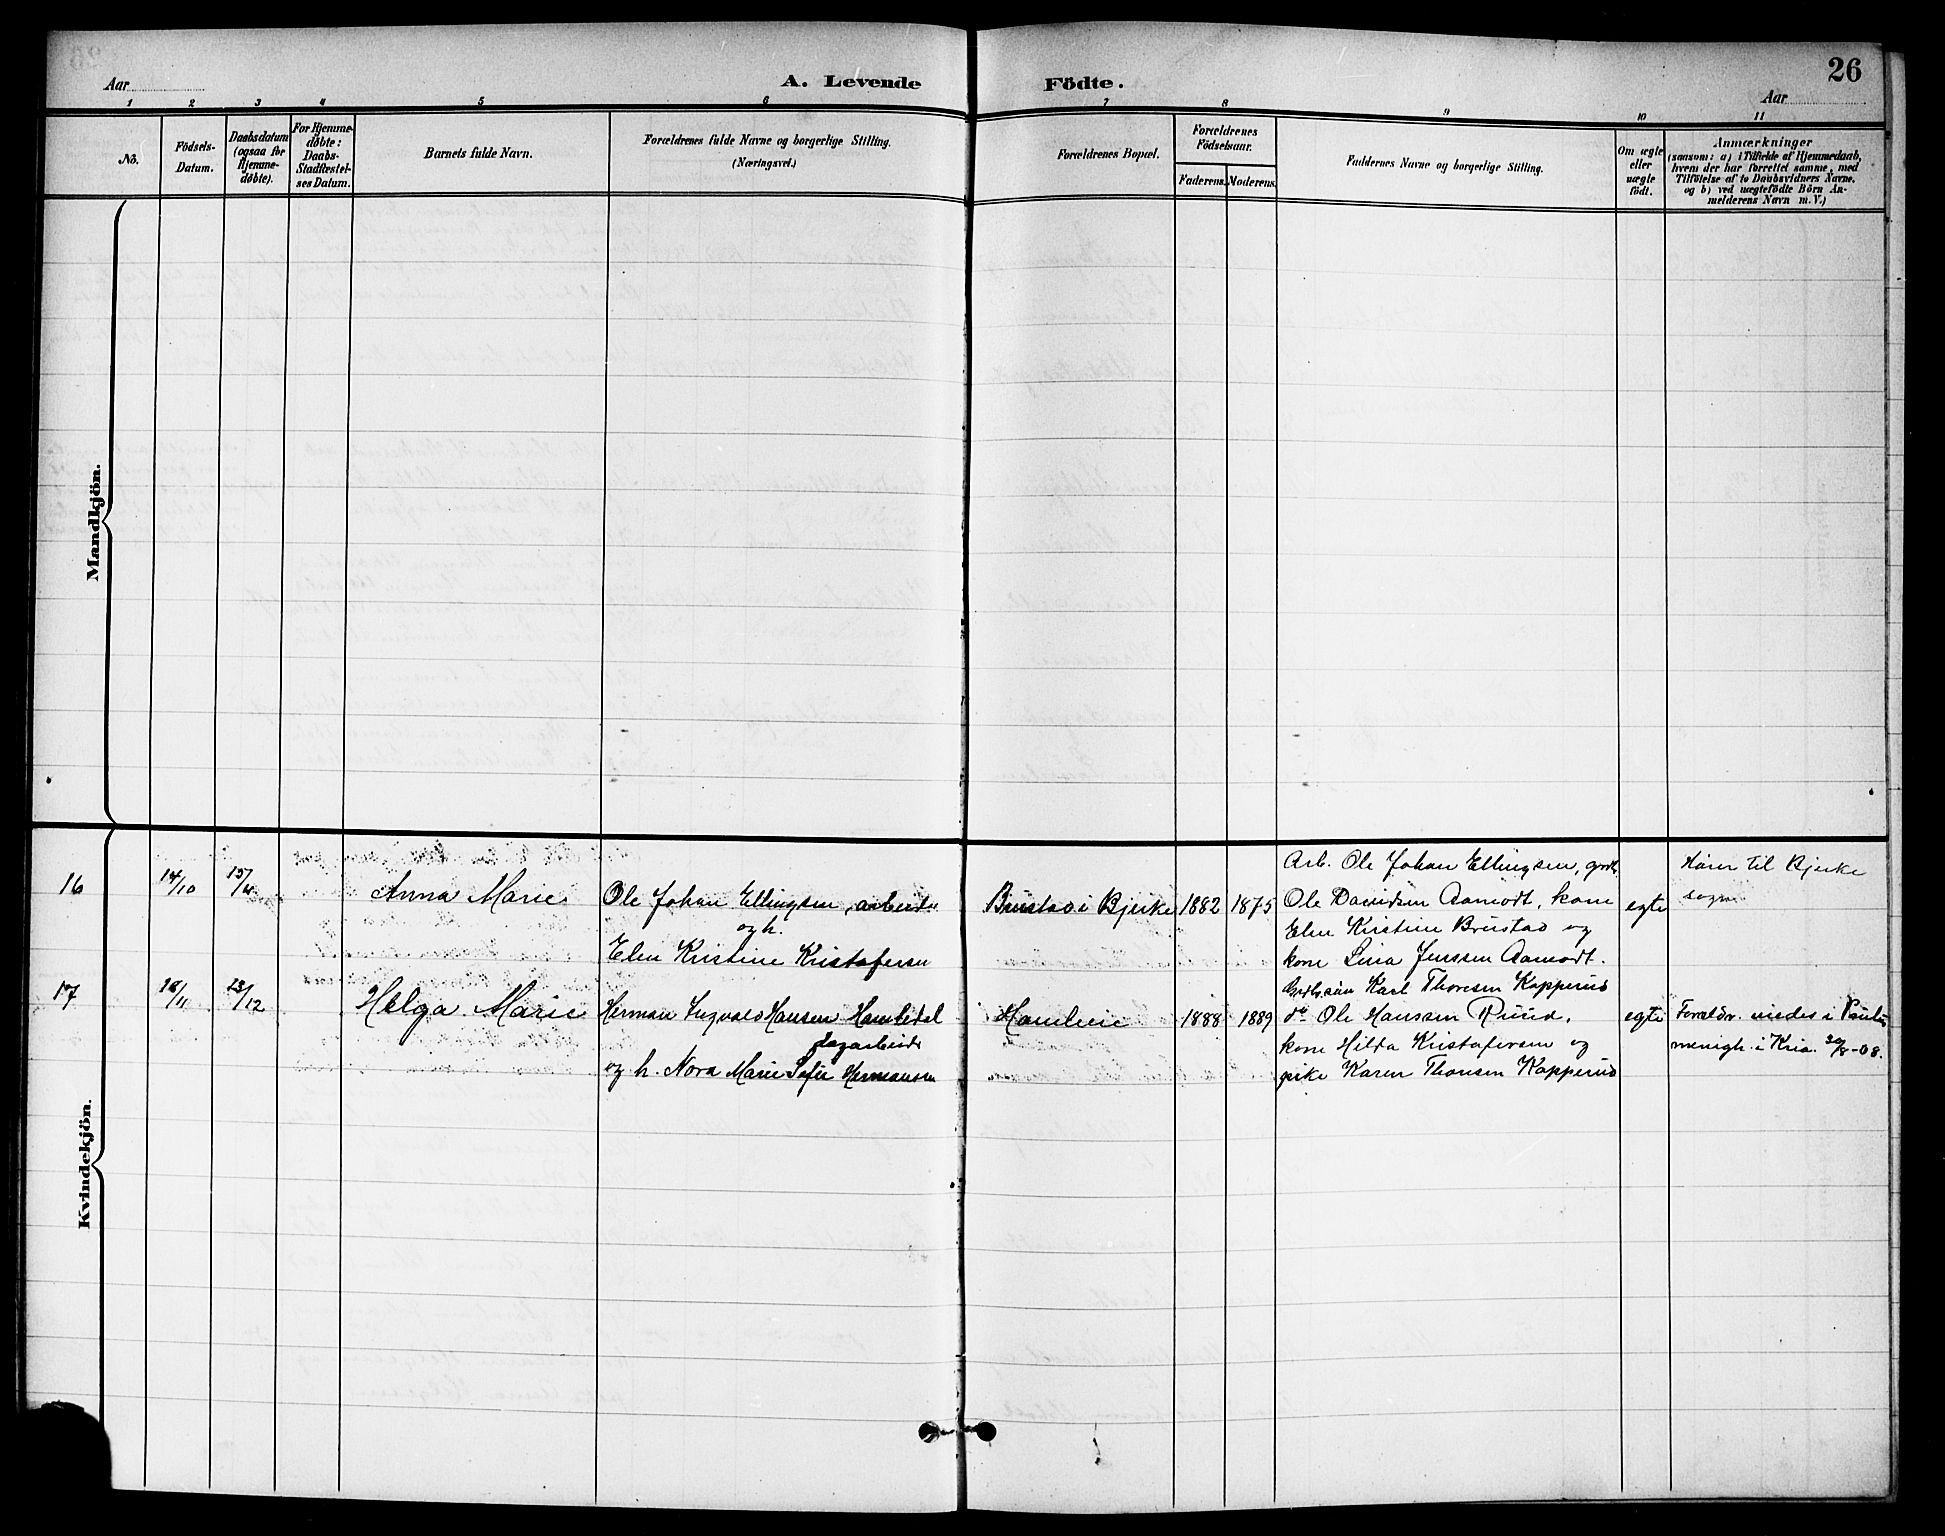 26
Aar
A. Levende Födte.
Aar
1 2 3 4 5 6 7 8 9 10 11
No.
Födsels-
Datum.
Daabsdatum
(ogsaa for
Hjemme-
døbte).
For Hjemme-
døbte:
Daabs-
Stadfæstel-
ses Datum.
Barnets fulde Navn.
Forældrenes fulde Navne og borgerlige Stilling.
(Næringsvei.)
Forældrenes Bopæl.
Forældrenes
Födselsaar.
Faderens. Moderens.
Faddernes Navne og borgerlige Stilling.
Om ægte
eller
uægte
født.
Anmærkninger
(saasom: a) i Tilfælde af Hjemmedaab,
hvem der har forrettet samme, med
Tilføielse af to Daabsvidners Navne,
og b) ved uægtefødte Börn An-
melderens Navn m. V.)
Mandkjön.
Kvindekjön.
16
14/10
15/11
Anna Marie
Ole Johan Ellingsen, arbeider
og h.
Elen Kristine Kristofersen
Brustad i Bjerke
1882
1875
Arb. Ole Johan Ellingsen, grdb.
Ole Davidsen Aamodt, kone
Elen Kristine Brustad og
kone Lina Jenssen Aamodt.
egte
Hører til Bjerke
sogn
17
18/11
13/12
Helga Marie
Herman Ingvald Hansen
dagarbeider
og h. Nora Marie Sofie Hermansen
1888
1889
Karl Thoresen Kopperud
do Ole Hanssen Ruud,
kone Hilda Kristofersen og
pike Karen Thoresen Kopperud
egte
Forældr. viedes i Paulus
menigh. i Kria. 30/8-08.